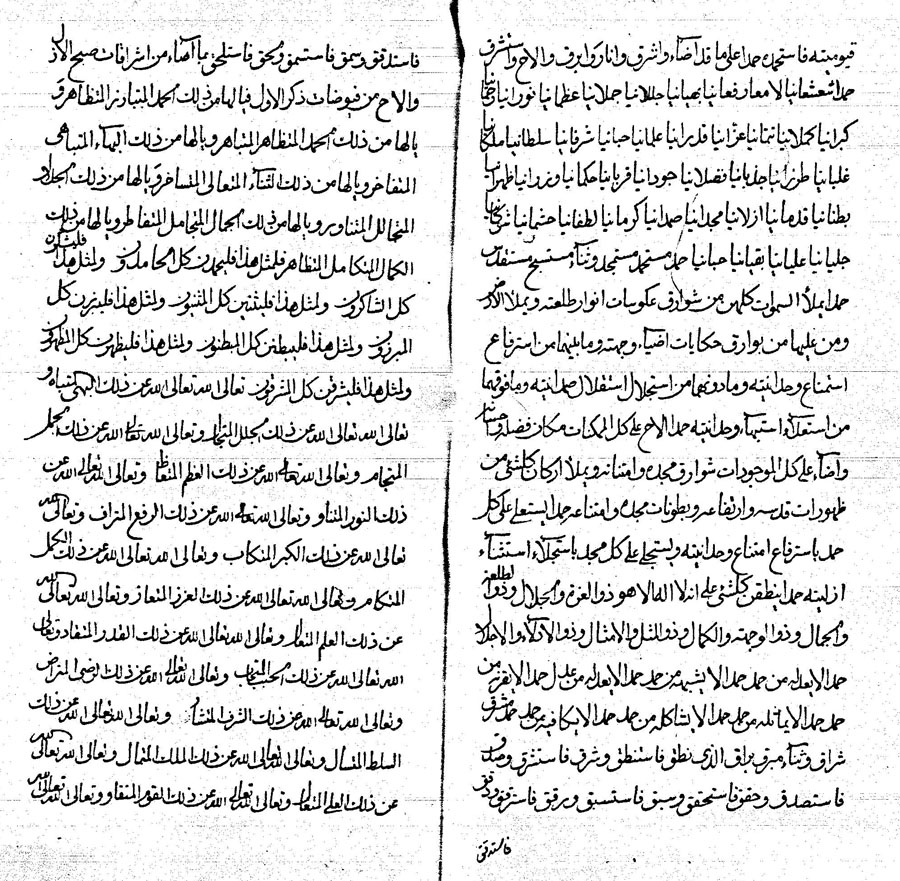 قيوميته فاستحمده حمدا على ما قد اضاء واشرق وانار وابرق والاح واستشرق
حمدا شعشعانيا لامعا رفعانيا بهيانيا جلانيا جملانيا عظمانيا نورانيا
كبرانيا كملانيا تمانيا عزانيا قدرانيا علمانيا حبانيا شرفانيا سلطانيا
غلبانيا طرزانيا جذبانيا فضلانيا جودانيا قربانيا حكمانيا وزرانيا
بطنانيا قدمانيا ازلانيا مجدانيا صمدانيا كرمانيا لطفانيا حشمانيا
جليانيا عليانيا بقيانيا حبانيا حمد مستحمد مستمجد وثناء مستسبح مستقدس
حمدا يملأ السموات كلهن من شوارق عكوسات انوار طلعته ويملأ الارض
ومن عليها من بوارق حكايات اضياء وجهته وما بينهما من استرفاع
امتناع وحدانيته وما دونهما من استجلال استقلال صمدانيته وما فوقهما
من استعلاء استبهاء وحدانيته حمدا الاح على كل الممكنات مكان فضله
واضاء على كل الموجودات شوارق مجده وامتنانه ويملأ اركان كلشئ من
ظهورات قدسه وارتفاعه وبطونات مجده وامتناعه حمدا يستعلى على كل
حمد باسترفاع امتناع وحدانيته ويستجلى على كل مجد باستجلاء استثناء
ازليته حمدا ينطقن كلشئ على انه لا اله الا هو ذو العزة والجلال وذو الطلعة
والجمال وذو الوجهة والكمال وذو المثل والامثال وذو الالاء والاجلال
حمدا لا يعدله من حمد حمدا لا يشبهه من حمد حمدا لا يعدله من عدل حمدا لا يقربه من
حمد حمدا لا يماثله من حمد حمدا لا يشاكله من حمد حمدا لا يكافيه من حمد حمد مشرق
شراق وثناء مبرق براق الذى نطق فاستنطق وشرق فاستشرق وصدق
فاستصدق وحقق فاستحقق وسبق فاستسبق وبرقق فاسترقق ودقق
فاستدقق
فاستدقق وسمق فاستسمق ولحق فاستلحق بما اضاء من اشراقات صبح الازل
والاح من فيوضات ذكر الاول فيالها من ذلك الحمد المتبارز المتظاهر و
يالها من ذلك الحمد المتظاهر المتباهر ويالها من ذلك البهاء المتباهى
المتفاخر ويالها من ذلك الثناء المتعالى المتساخر ويالها من ذلك الجلال
المتجالل المتناور ويالها من ذلك الجمال المتجامل المتفاطر ويالها من ذلك
الكمال المتكامل المتظاهر فلمثل هذا فليحمدن كل الحامدون ولمثل هذا فليشكرن
كل الشاكرون ولمثل هذا فليثنين كل المثنيون ولمثل هذا فليبرزن كل
المبرزون ولمثل هذا فليبطنن كل المبطنون ولمثل هذا فليظهرن كل المظهرون
ولمثل هذا فليشرقن كل المشرقون تعالى الله تعالى الله عن ذلك البهى المتباه و
تعالى الله تعالى الله عن ذلك الجلل المتجال وتعالى الله تعالى الله عن ذلك الجمل
المتجام وتعالى الله تعالى الله عن ذلك العظم المتعاظ وتعالى الله تعالى الله عن
ذلك النور المتناو وتعالى الله تعالى الله عن ذلك الرفع المتراف وتعالى الله
تعالى الله عن ذلك الكبر المتكاب وتعالى الله تعالى الله عن ذلك الكمل
المتكام وتعالى الله تعالى الله عن ذلك العزز المتعاز وتعالى الله تعالى الله
عن ذلك العلم المتعال وتعالى الله تعالى الله عن ذلك القدر المتقاد وتعالى
الله تعالى الله عن ذلك الحبب المتحاب وتعالى الله تعالى الله عن ذلك الرضى المتراض
وتعالى الله تعالى الله عن ذلك الشرف المتشار وتعالى الله تعالى الله عن ذلك
السلط المتسال وتعالى الله تعالى الله عن ذلك الملك المتمال وتعالى الله تعالى الله
عن ذلك العلى المتعال وتعالى الله تعالى الله عن ذلك القوم المتقاو وتعالى الله تعالى الله